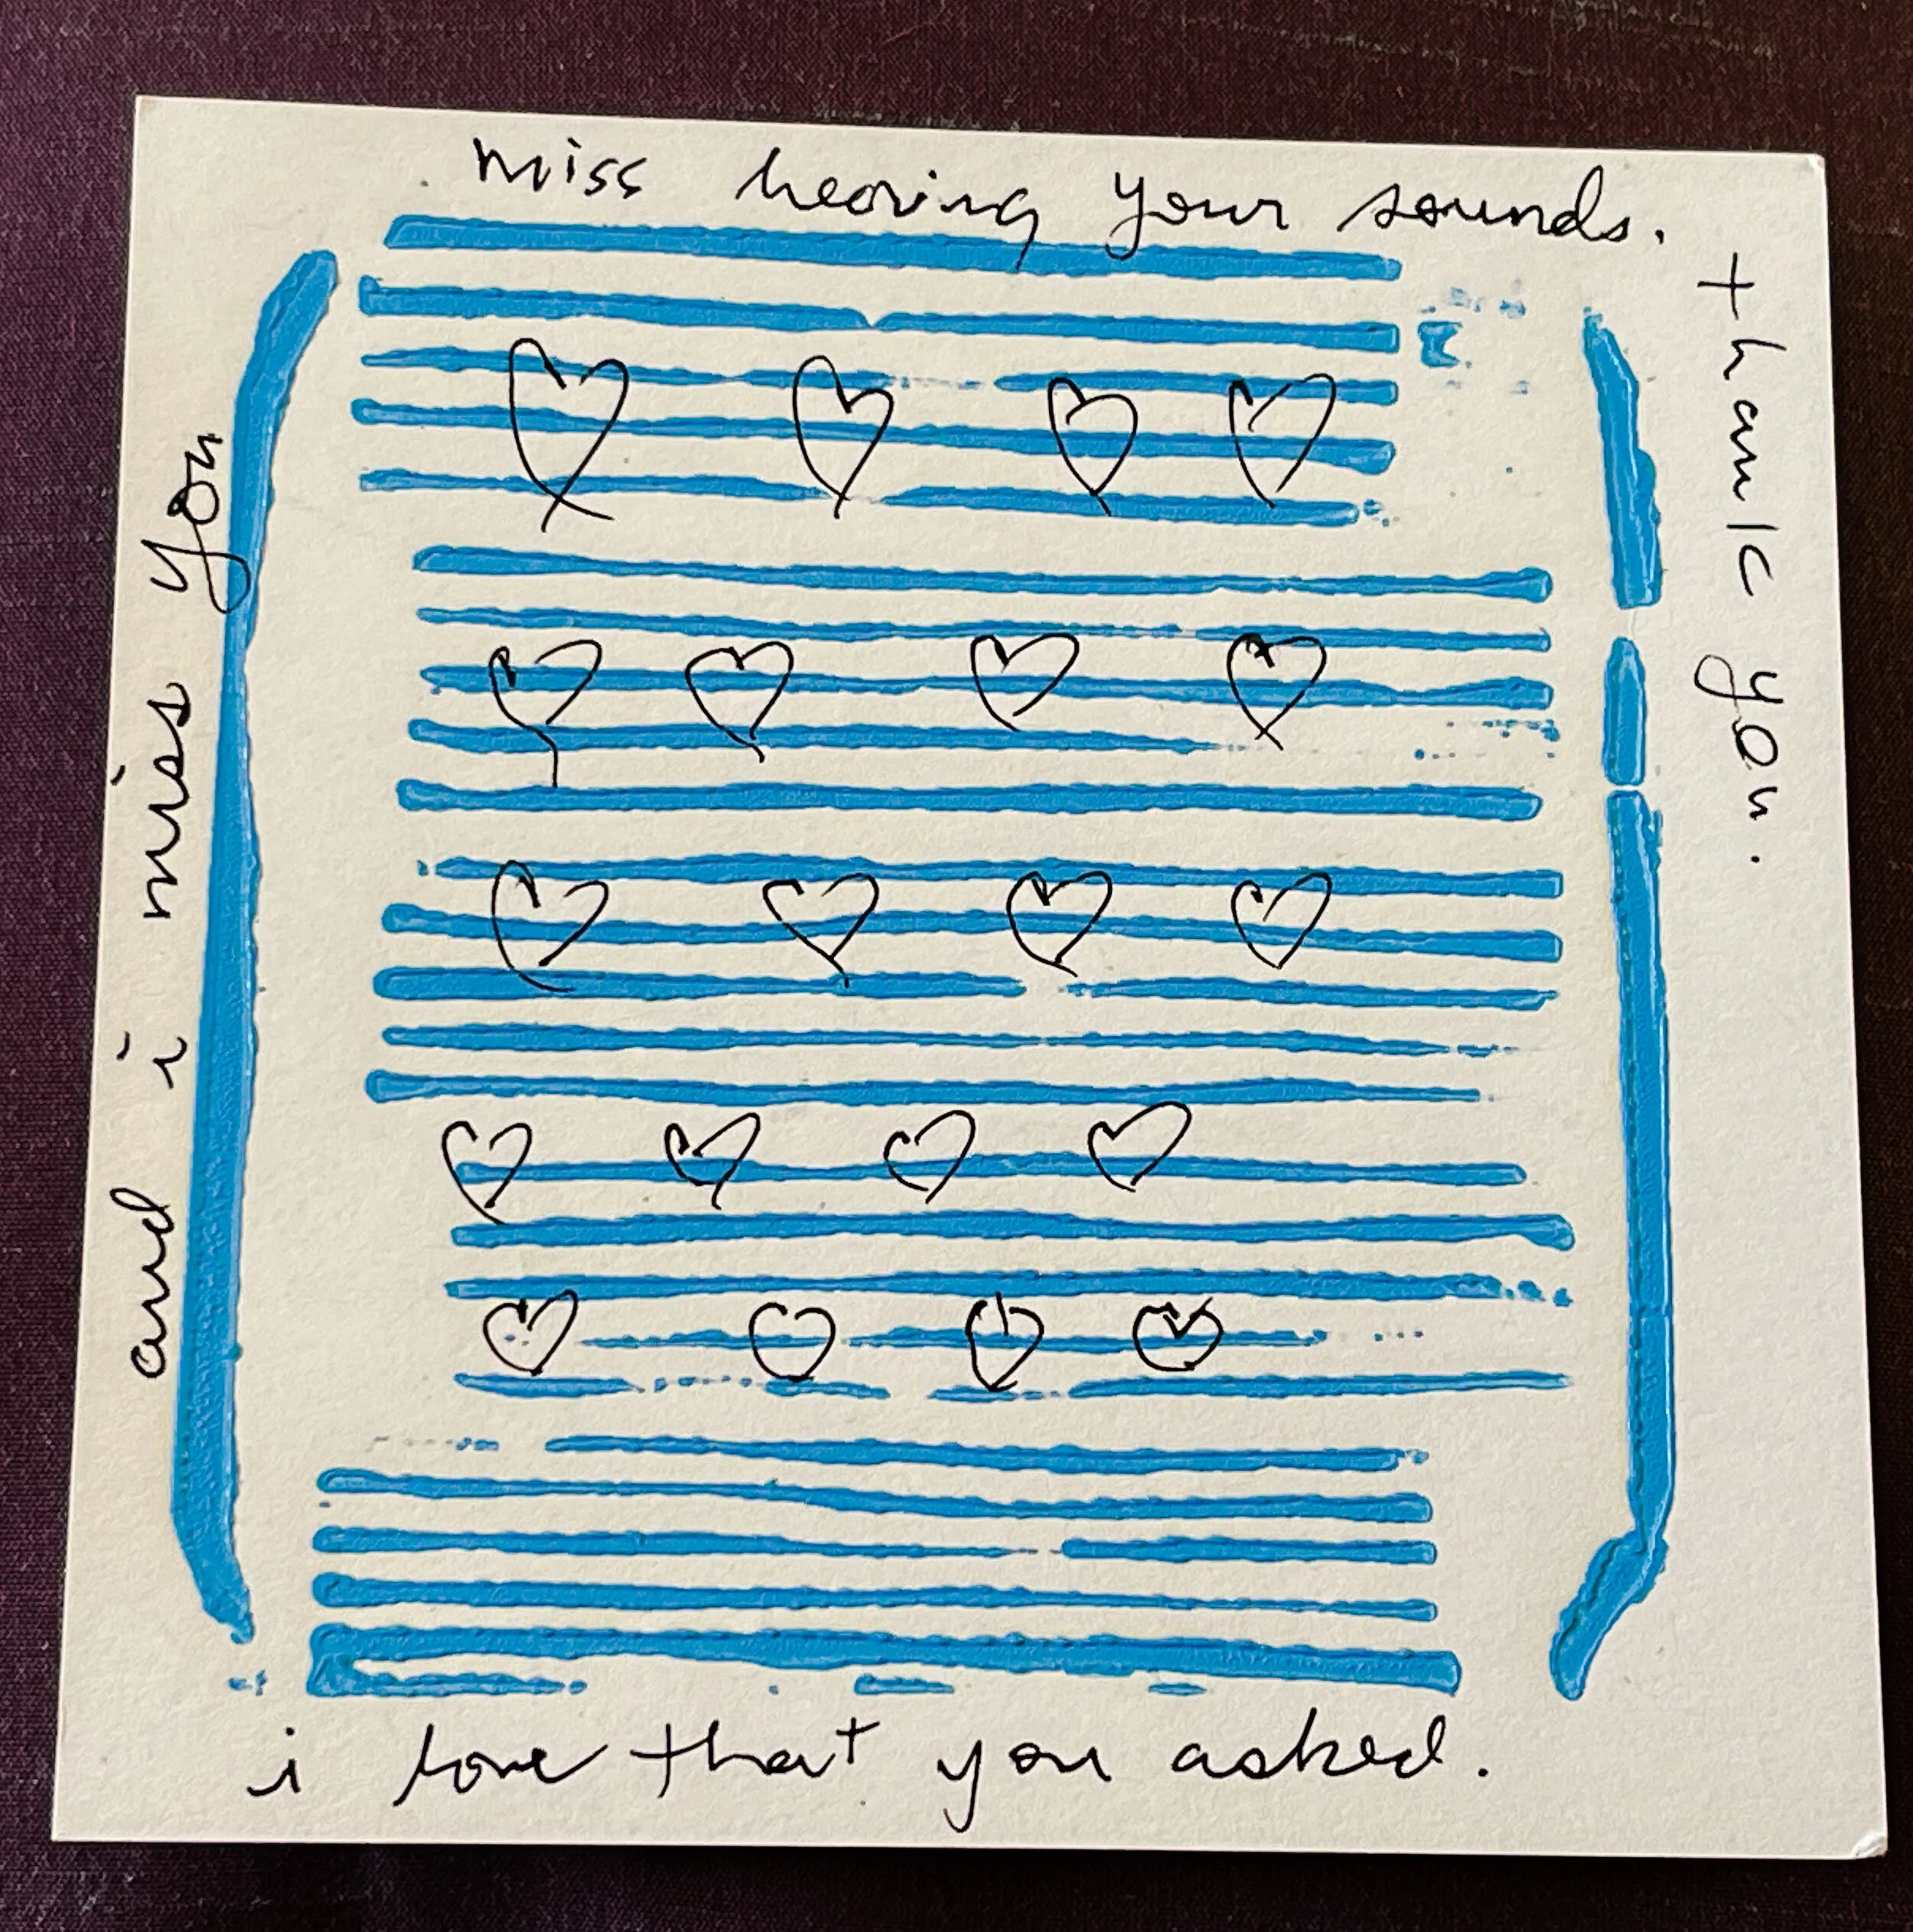 miss hearing your sounds.
thank you.
i love that you asked.
and i miss you